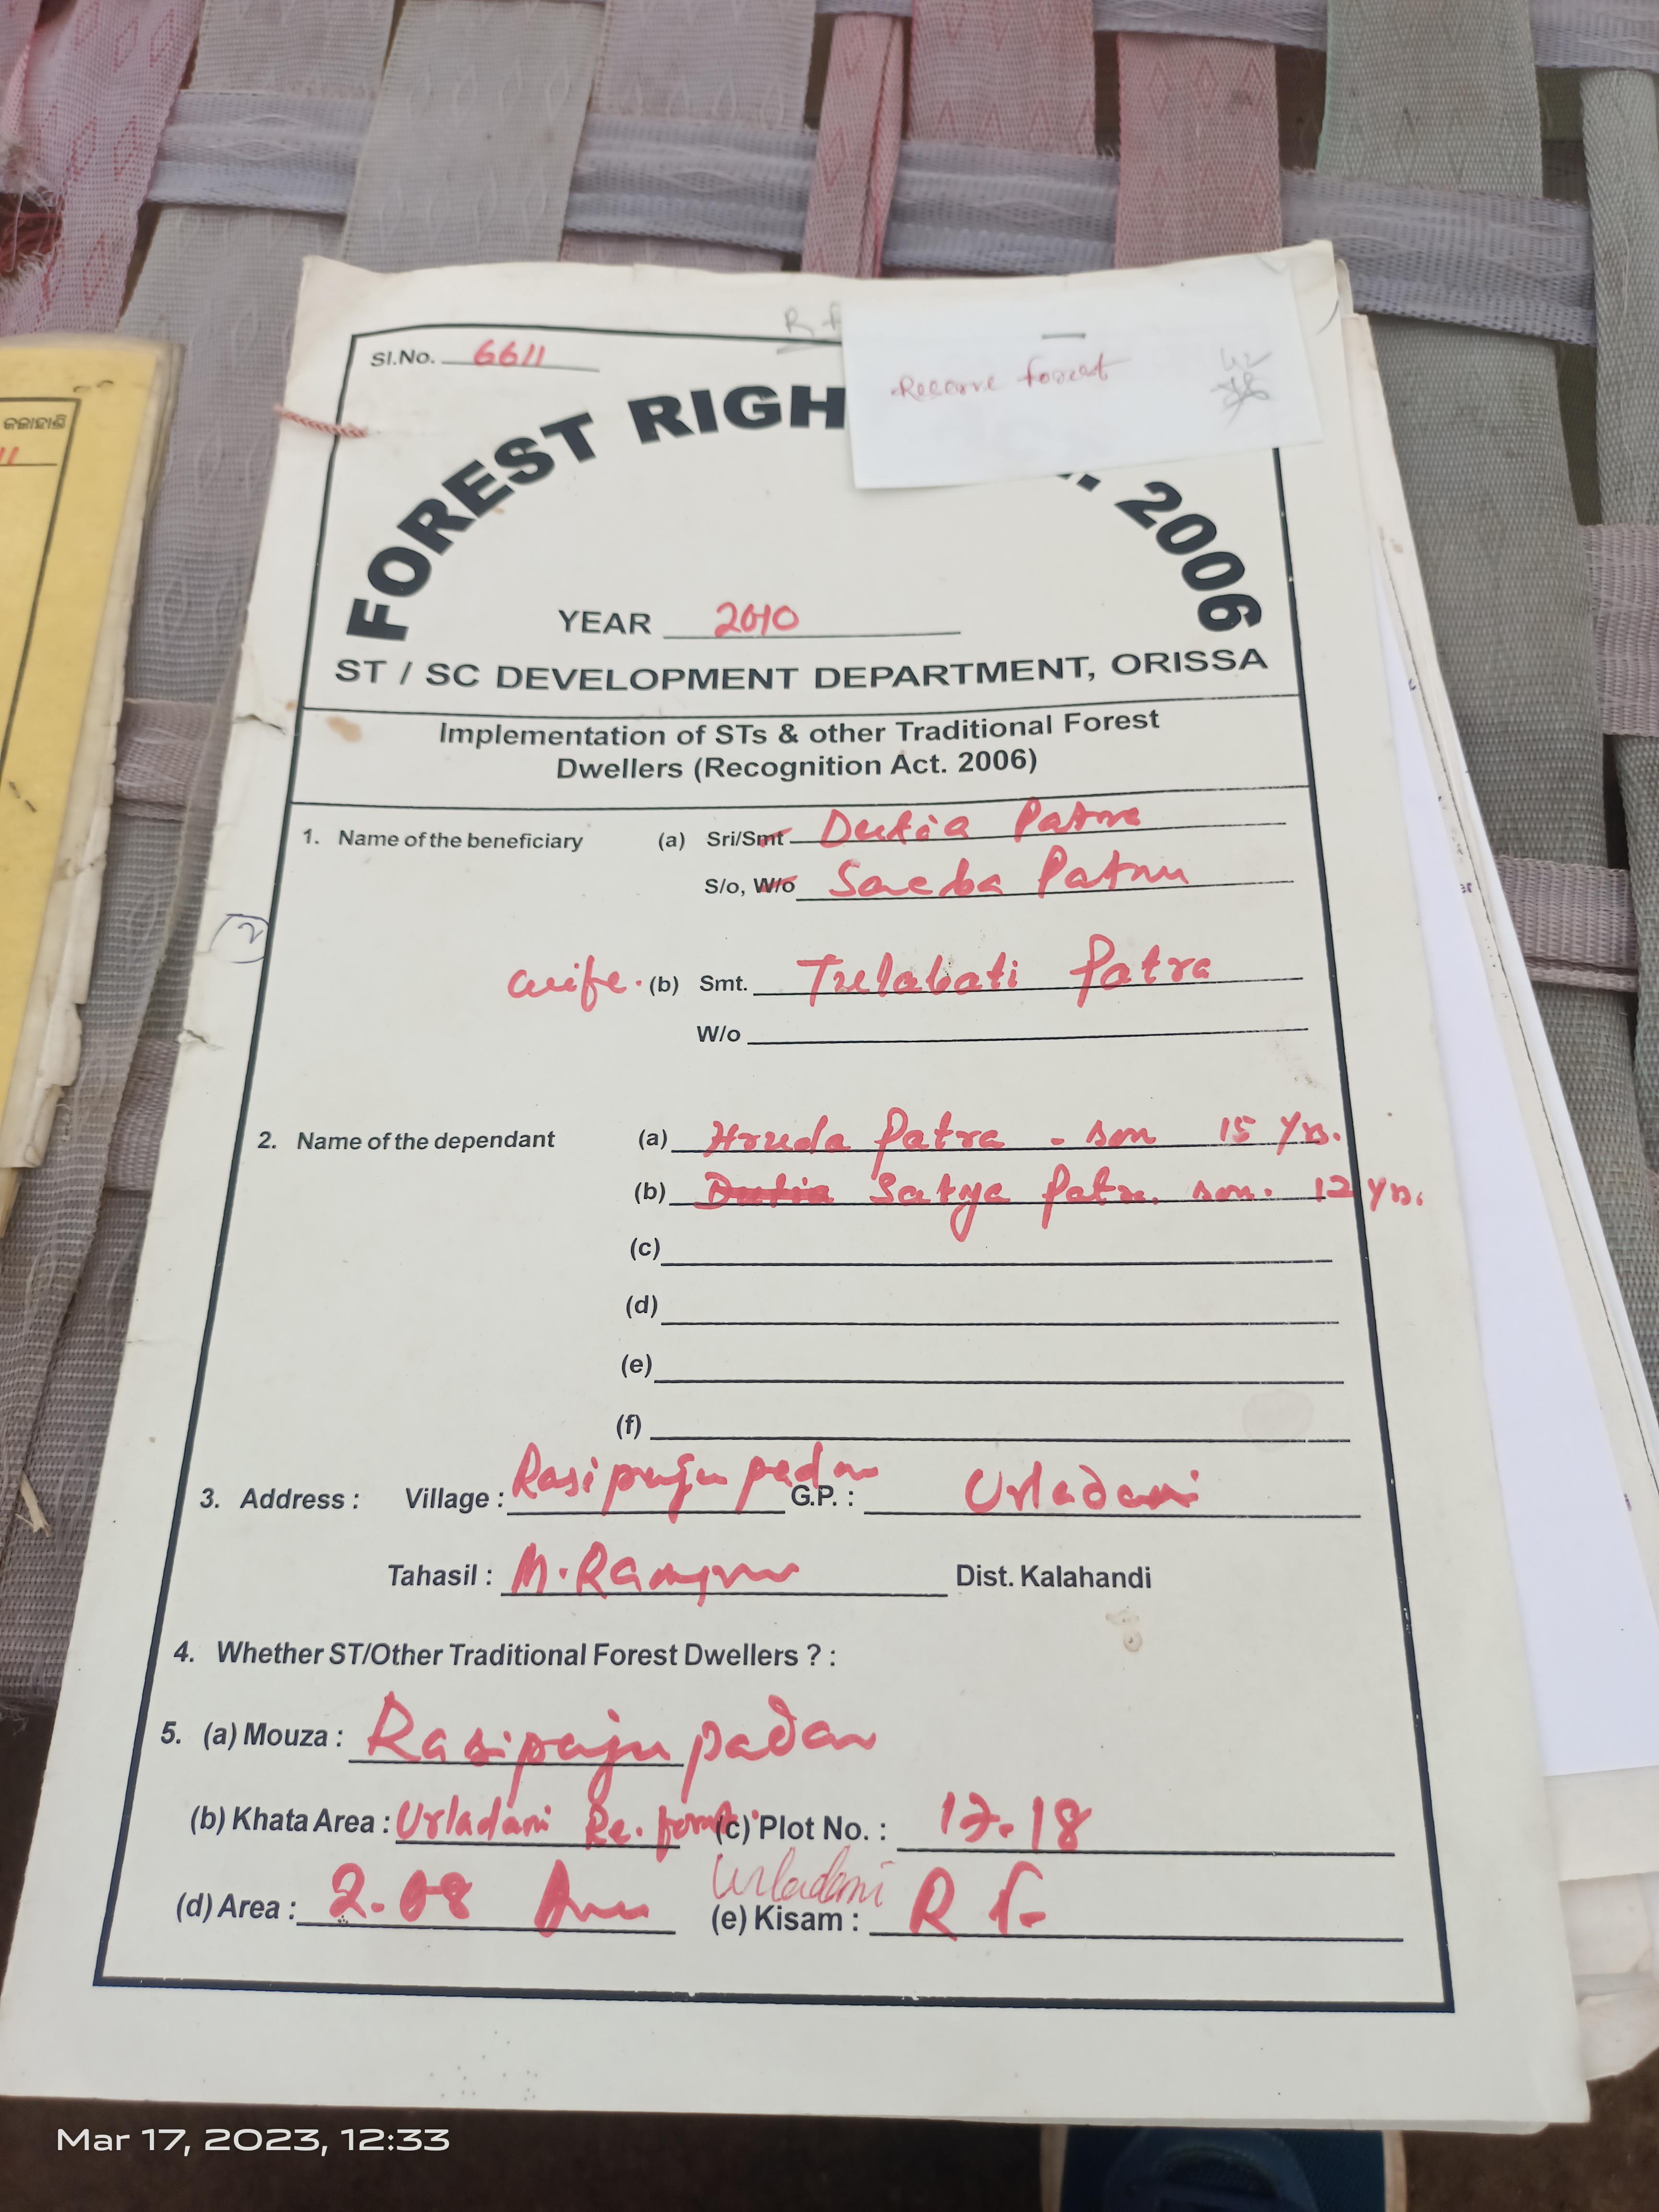 କଳାହାଣ୍ଡି
11
R f
Reserve forest
Sl.No. 6611
FOREST RIGH
. 2006
YEAR 2010
ST / SC DEVELOPMENT DEPARTMENT, ORISSA
Implementation of STs & other Traditional Forest
Dwellers (Recognition Act. 2006)
1. Name of the beneficiary (a) Sri/Smt Dutia Patra
S/o, W/o Saeba Patra
2
wife. (b) Smt. Tulabati Patra
W/o
2. Name of the dependant (a) Hruda Patra - son 15 yrs.
(b) Dutia Satya Patra. son. 12 yrs.
(c)
(d)
(e)
(f)
3. Address : Village : Rasipujupadar G.P. : Urladani
Tahasil : M. Rampur Dist. Kalahandi
4. Whether ST/Other Traditional Forest Dwellers ? :
5. (a) Mouza : Rasipujupadar
(b) Khata Area : Urladani Re. forest (c) Plot No. : 17-18
Urladani
(d) Area : 2.08 (e) Kisam : R f
Mar 17, 2023, 12:33